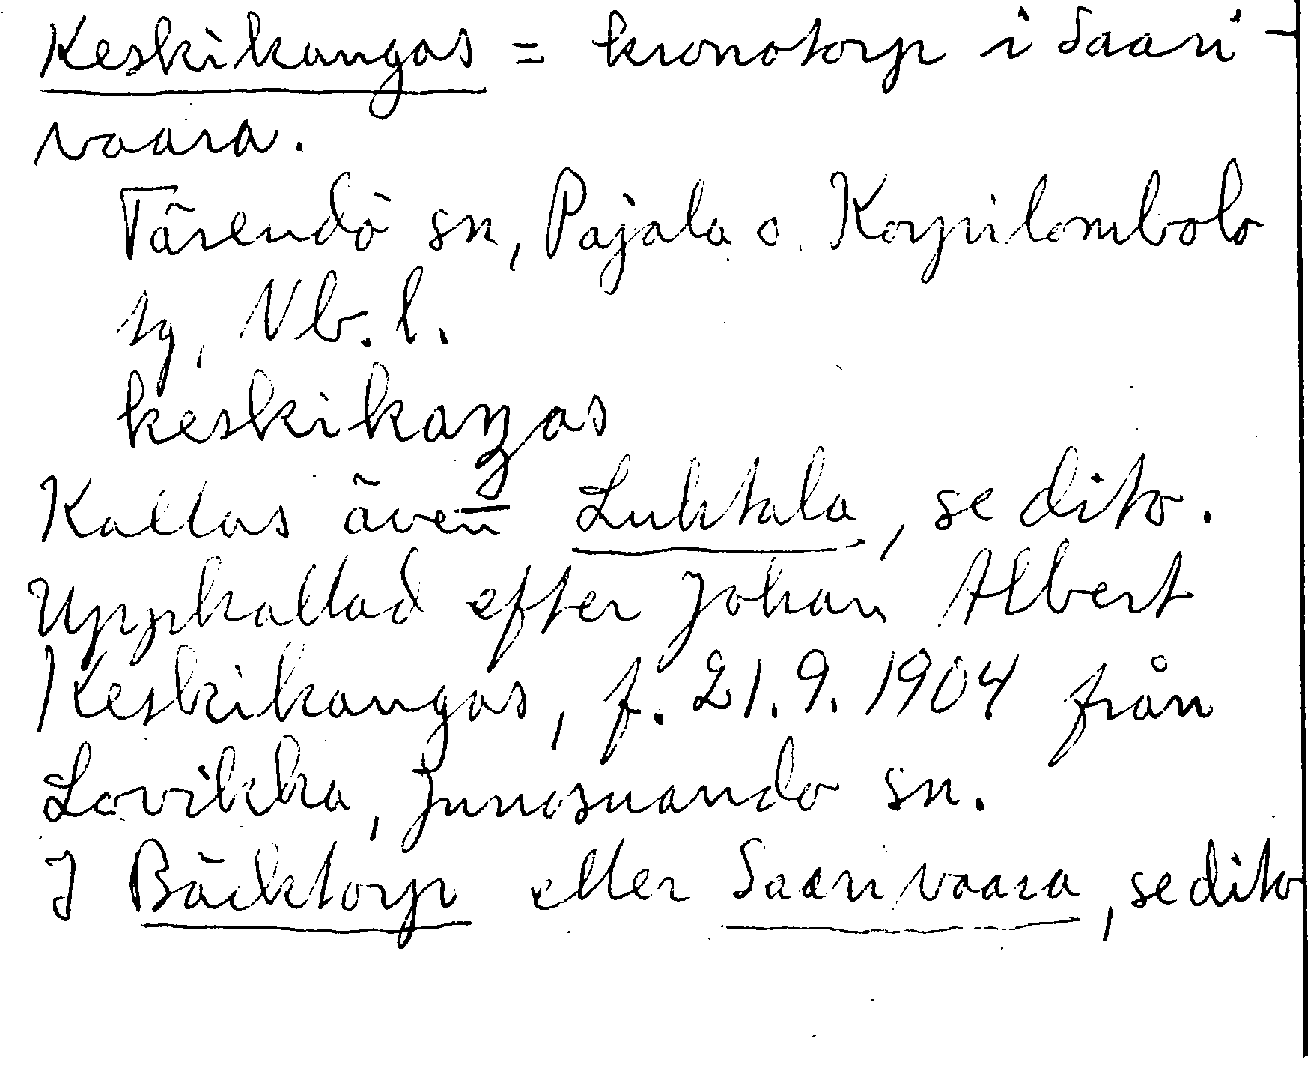 Keskikangas = kronotorp i Saari-
vaara.
Tärendö sn, Pajala o. Korpilombolo
tg, Nb. l.
keskikaŋŋas
Kallas även Luhtala, se dito.
Uppkallad efter Johan Albert
Keskikangas, f. 21.9.1904 från
Lovikka, Junosuando sn.
I Bäcktorp eller Saarivaara, se dito